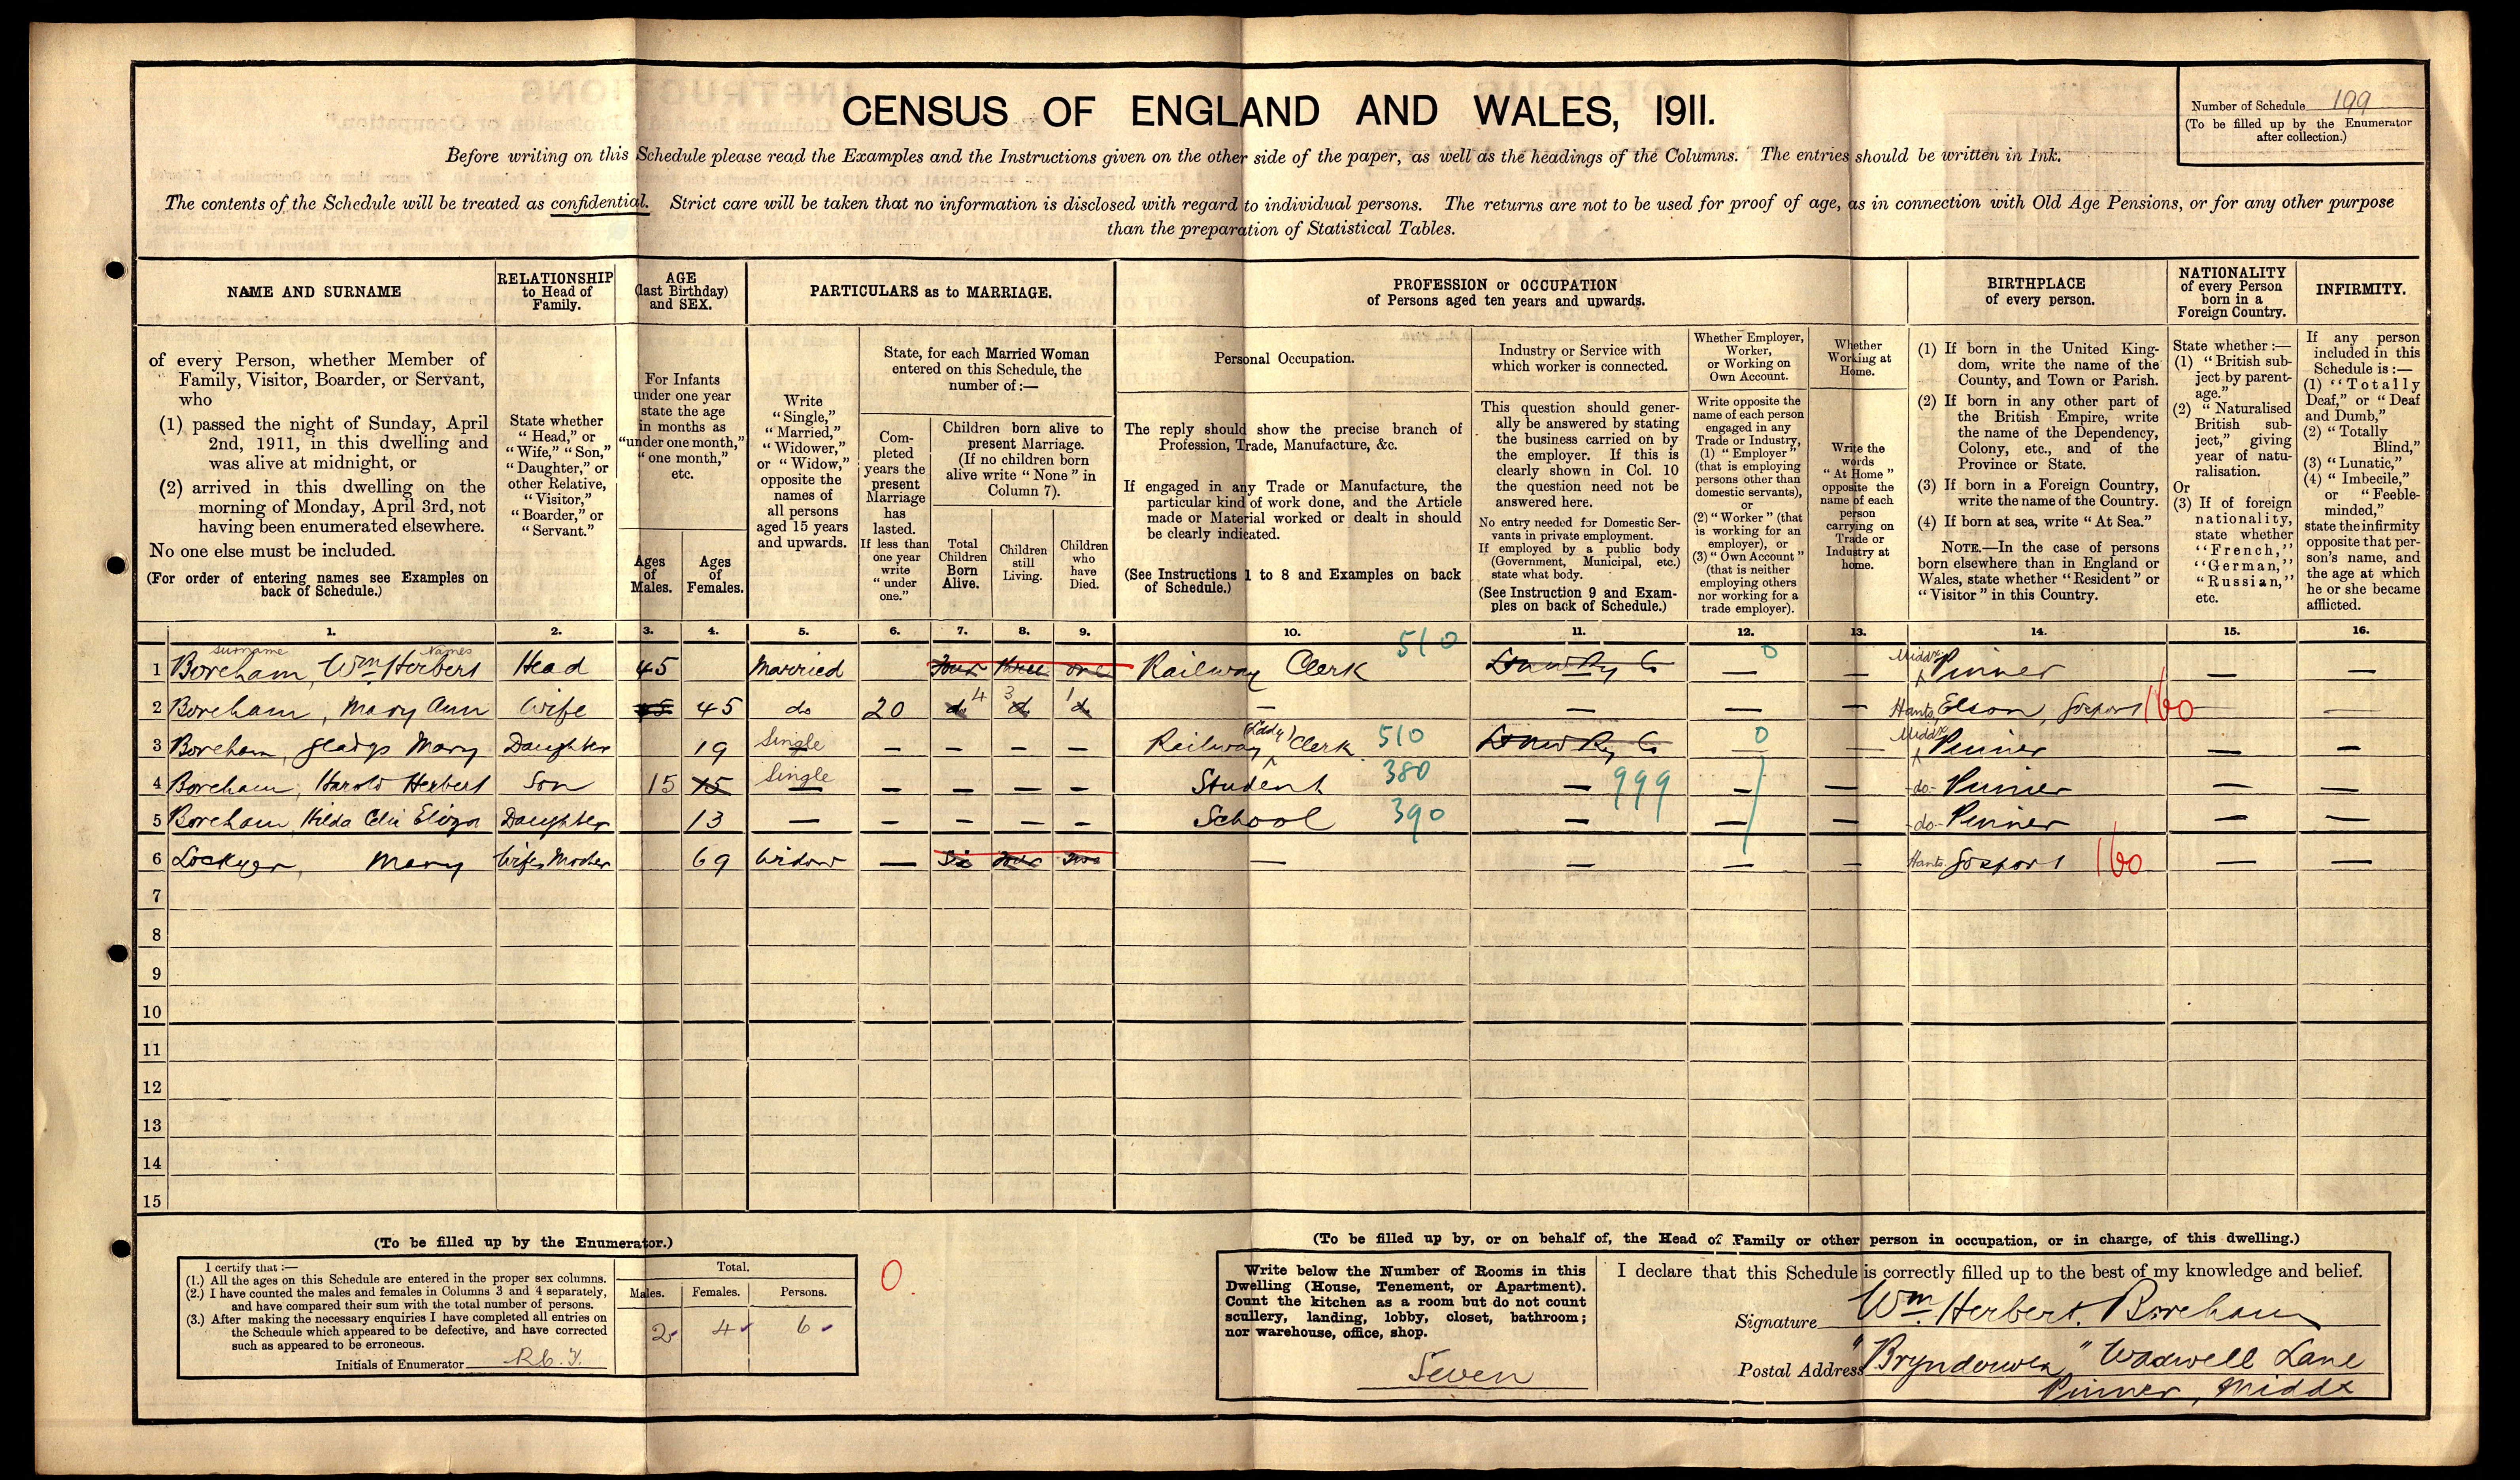 CENSUS OF ENGLAND AND WALES, 1911.
Number of Schedule 199
(To be filled up by the Enumerator
after collection.)
Before writing on this Schedule please read the Examples and the Instructions given on the other side of the paper, as well as the headings of the Columns. The entries should be written in Ink.
The contents of the Schedule will be treated as confidential. Strict care will be taken that no information is disclosed with regard to individual persons. The returns are not to be used for proof of age, as in connection with Old Age Pensions, or for any other purpose
than the preparation of Statistical Tables.
NAME AND SURNAME
of every Person, whether Member of
Family, Visitor, Boarder, or Servant,
who
(1) passed the night of Sunday, April
2nd, 1911, in this dwelling and
was alive at midnight, or
(2) arrived in this dwelling on the
morning of Monday, April 3rd, not
having been enumerated elsewhere.
No one else must be included.
(For order of entering names see Examples on
back of Schedule.)
RELATIONSHIP
to Head of
Family.
State whether
"Head," or
"Wife," "Son,"
"Daughter," or
other Relative,
"Visitor,"
"Boarder," or
"Servant."
AGE
(last Birthday)
and SEX.
For Infants
under one year
state the age
in months as
"under one month,"
"one month,"
etc.
Ages
of
Males.
Ages
of
Females.
PARTICULARS as to MARRIAGE.
Write
"Single,"
"Married,"
"Widower,"
or "Widow,"
opposite the
names of
all persons
aged 15 years
and upwards.
State, for each Married Woman
entered on this Schedule, the
number of:—
Com-
pleted
years the
present
Marriage
has
lasted.
If less than
one year
write
"under
one."
Children born alive to
present Marriage.
(If no children born
alive write "None" in
Column 7).
Total
Children
Born
Alive.
Children
still
Living.
Children
who
have
Died.
PROFESSION or OCCUPATION
of Persons aged ten years and upwards.
Personal Occupation.
The reply should show the precise branch of
Profession, Trade, Manufacture, &c.
If engaged in any Trade or Manufacture, the
particular kind of work done, and the Article
made or Material worked or dealt in should
be clearly indicated.
(See Instructions 1 to 8 and Examples on back
of Schedule.)
Industry or Service with
which worker is connected.
This question should gener-
ally be answered by stating
the business carried on by
the employer. If this is
clearly shown in Col. 10
the question need not be
answered here.
No entry needed for Domestic Ser-
vants in private employment.
If employed by a public body
(Government, Municipal, etc.)
state what body.
(See Instruction 9 and Exam-
ples on back of Schedule.)
Whether Employer,
Worker,
or Working on
Own Account.
Write opposite the
name of each person
engaged in any
Trade or Industry,
(1) "Employer"
(that is employing
persons other than
domestic servants),
or
(2) "Worker" (that
is working for an
employer), or
(3) "Own Account"
(that is neither
employing others
nor working for a
trade employer).
Whether
Working at
Home.
Write the
words
"At Home"
opposite the
name of each
person
carrying on
Trade or
Industry at
home.
BIRTHPLACE
of every person.
(1) If born in the United King-
dom, write the name of the
County, and Town or Parish.
(2) If born in any other part of
the British Empire, write
the name of the Dependency,
Colony, etc., and of the
Province or State.
(3) If born in a Foreign Country,
write the name of the Country.
(4) If born at sea, write "At Sea."
NOTE.—In the case of persons
born elsewhere than in England or
Wales, state whether "Resident" or
"Visitor" in this Country.
NATIONALITY
of every Person
born in a
Foreign Country.
State whether:—
(1) "British sub-
ject by parent-
age."
(2) "Naturalised
British sub-
ject," giving
year of natu-
ralisation.
Or
(3) If of foreign
nationality,
state whether
"French,"
"German,"
"Russian,"
etc.
INFIRMITY.
If any person
included in this
Schedule is:—
(1) "Totally
Deaf," or "Deaf
and Dumb,"
(2) "Totally
Blind,"
(3) "Lunatic,"
(4) "Imbecile,"
or "Feeble-
minded,"
state the infirmity
opposite that per-
son's name, and
the age at which
he or she became
afflicted.
1. 2. 3. 4. 5. 6. 7. 8. 9. 10. 11. 12. 13. 14. 15. 16.
surname Names
1 Boreham, Wm Herbert Head 45 Married four three one Railway Clerk 510 L & NW Ry Co 0 — — Middx Pinner — —
2 Boreham, Mary Ann Wife 45 45 do 20 do 4 do 3 do 1 — — — — Hants, Elson, Gosport 160 — —
3 Boreham, Gladys Mary Daughter 19 Single — — — — Railway (Lady) Clerk 510 L & NW Ry Co 0 — — Middx Pinner — —
4 Boreham, Harold Herbert Son 15 15 Single — — — — Student 380 — 999 — — -do- Pinner — —
5 Boreham, Hilda Celia Eliza Daughter 13 — — — — — School 390 — — — -do- Pinner — —
6 Lockyer, Mary Wife's Mother 69 Widow — Six four two — — — — Hants. Gosport 160 — —
7
8
9
10
11
12
13
14
15
(To be filled up by the Enumerator.)
I certify that:—
(1.) All the ages on this Schedule are entered in the proper sex columns.
(2.) I have counted the males and females in Columns 3 and 4 separately,
and have compared their sum with the total number of persons.
(3.) After making the necessary enquiries I have completed all entries on
the Schedule which appeared to be defective, and have corrected
such as appeared to be erroneous.
Initials of Enumerator
Total.
Males. Females. Persons.
2 4 6
0.
(To be filled up by, or on behalf of, the Head of Family or other person in occupation, or in charge, of this dwelling.)
Write below the Number of Rooms in this
Dwelling (House, Tenement, or Apartment).
Count the kitchen as a room but do not count
scullery, landing, lobby, closet, bathroom;
nor warehouse, office, shop.
Seven
I declare that this Schedule is correctly filled up to the best of my knowledge and belief.
Signature Wm. Herbert. Boreham
Postal Address "Brynderwen" Wadwell Lane
Pinner, Middx